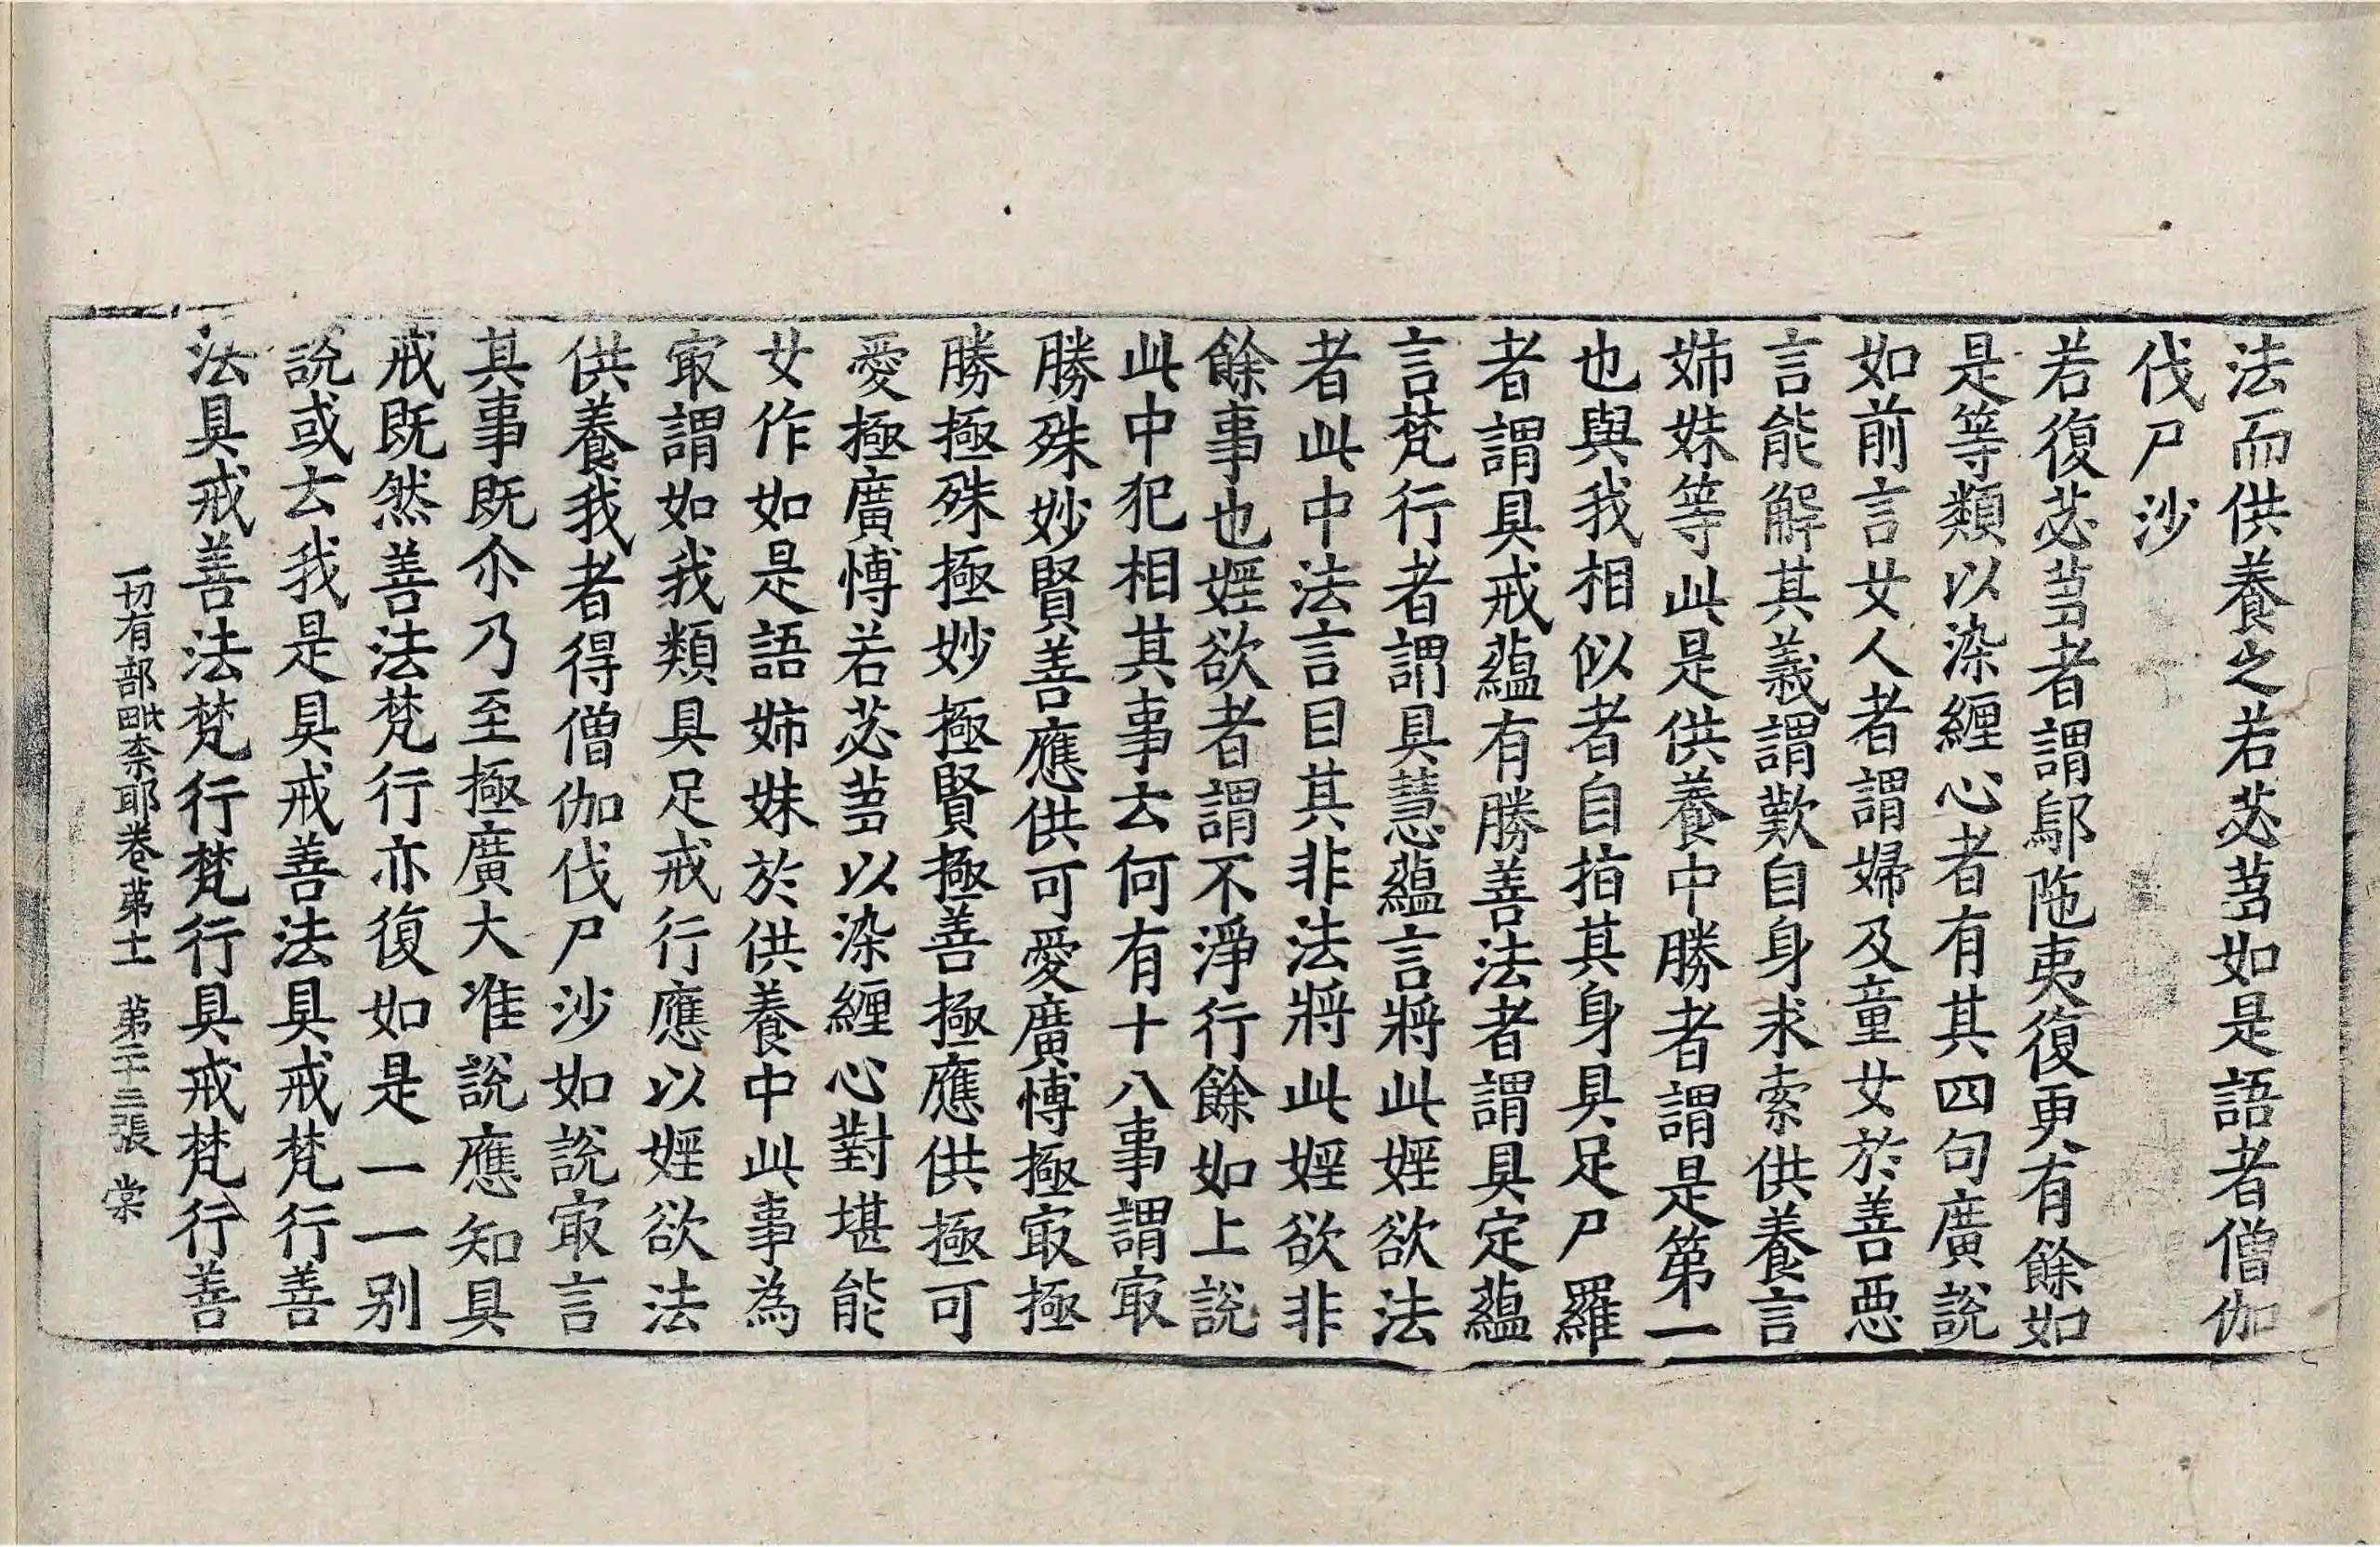 法而供養之若苾芻如是語者僧伽
伐尸沙
若復苾芻者謂鄔陁夷復更有餘如
是等類以染纏心者有其四句廣說
如前言女人者謂婦及童女於善惡
言能解其義謂歎自身求索供養言
姉妹等此是供養中勝者謂是第一
也與我相似者自指其身具足尸羅
者謂具戒蘊有勝善法者謂具定蘊
言梵行者謂具慧蘊言將此婬欲法
者此中法言目其非法將此婬欲非
餘事也婬欲者謂不淨行餘如上說
此中犯相其事云何有十八事謂㝡
勝殊妙賢善應供可愛廣愽極㝡極
勝極殊極妙極賢極善極應供極可
愛極廣愽若苾芻以染纏心對堪能
女作如是語姉妹於供養中此事為
㝡謂如我類具足戒行應以婬欲法
供養我者得僧伽伐尸沙如說㝡言
其事既尒乃至極廣大准說應知具
戒既然善法梵行亦復如是一一別
說或云我是具戒善法具戒梵行善
法具戒善法梵行梵行具戒梵行善
一切有部毗柰耶卷苐十一 苐二十三張 棠